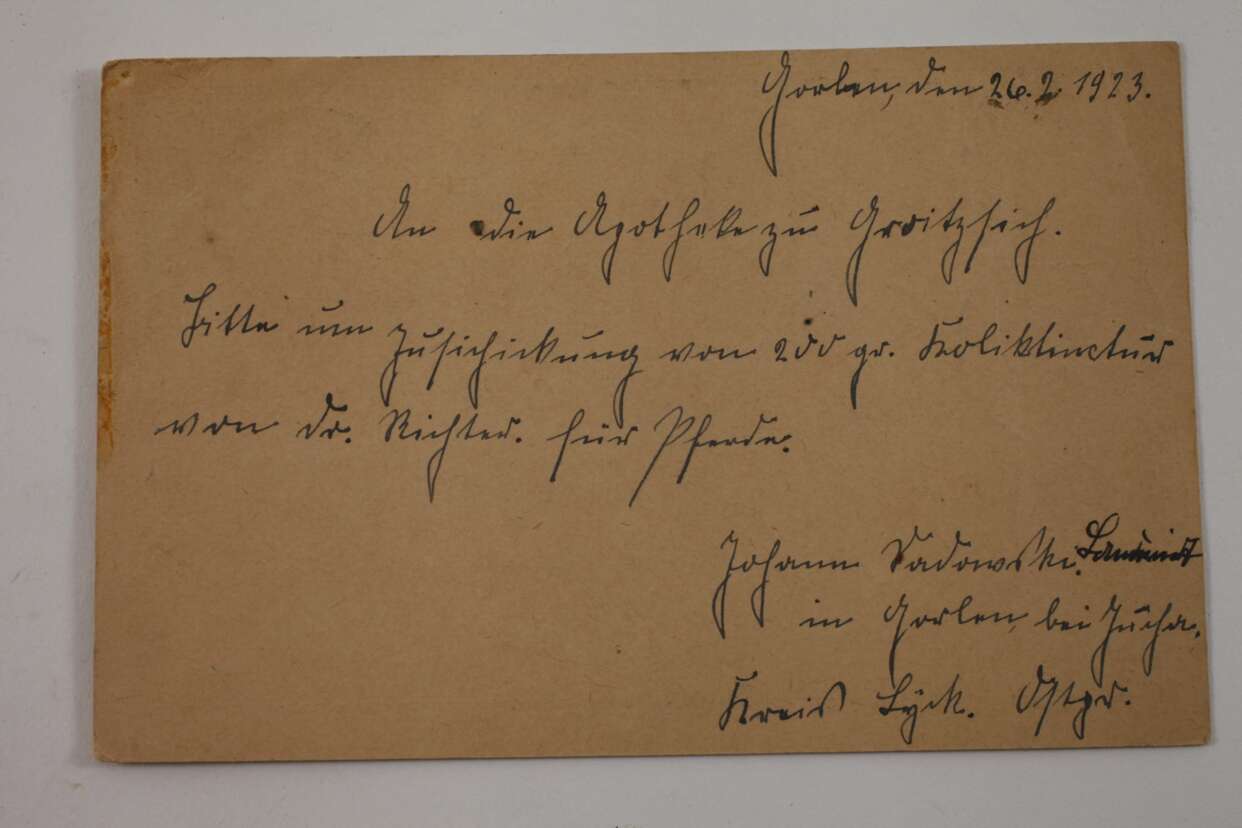 Gorlen, den 26.2.1923.
An die Apotheke zu Groitzsich.
Bitte um Zusichickung von 200 gr. Koliktinctur
von Dr. Richter. für Pferde.
Johann Sadowski.
in Gorlen, bei Jucha.
Kreis Lyck. Ostpr.